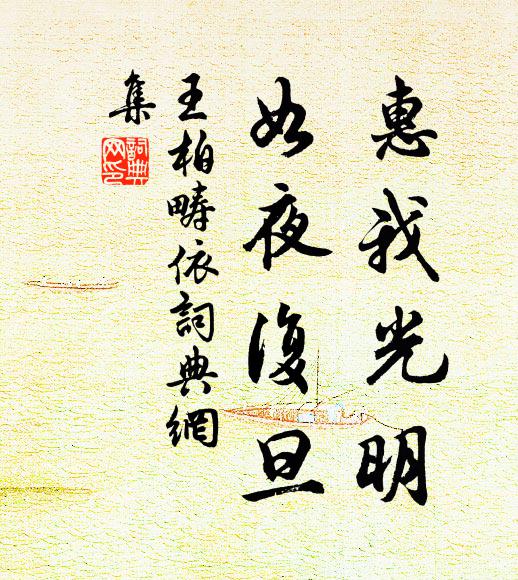 惠我光明
如夜復旦
王柏疇依詞典網
集
詞典
网印